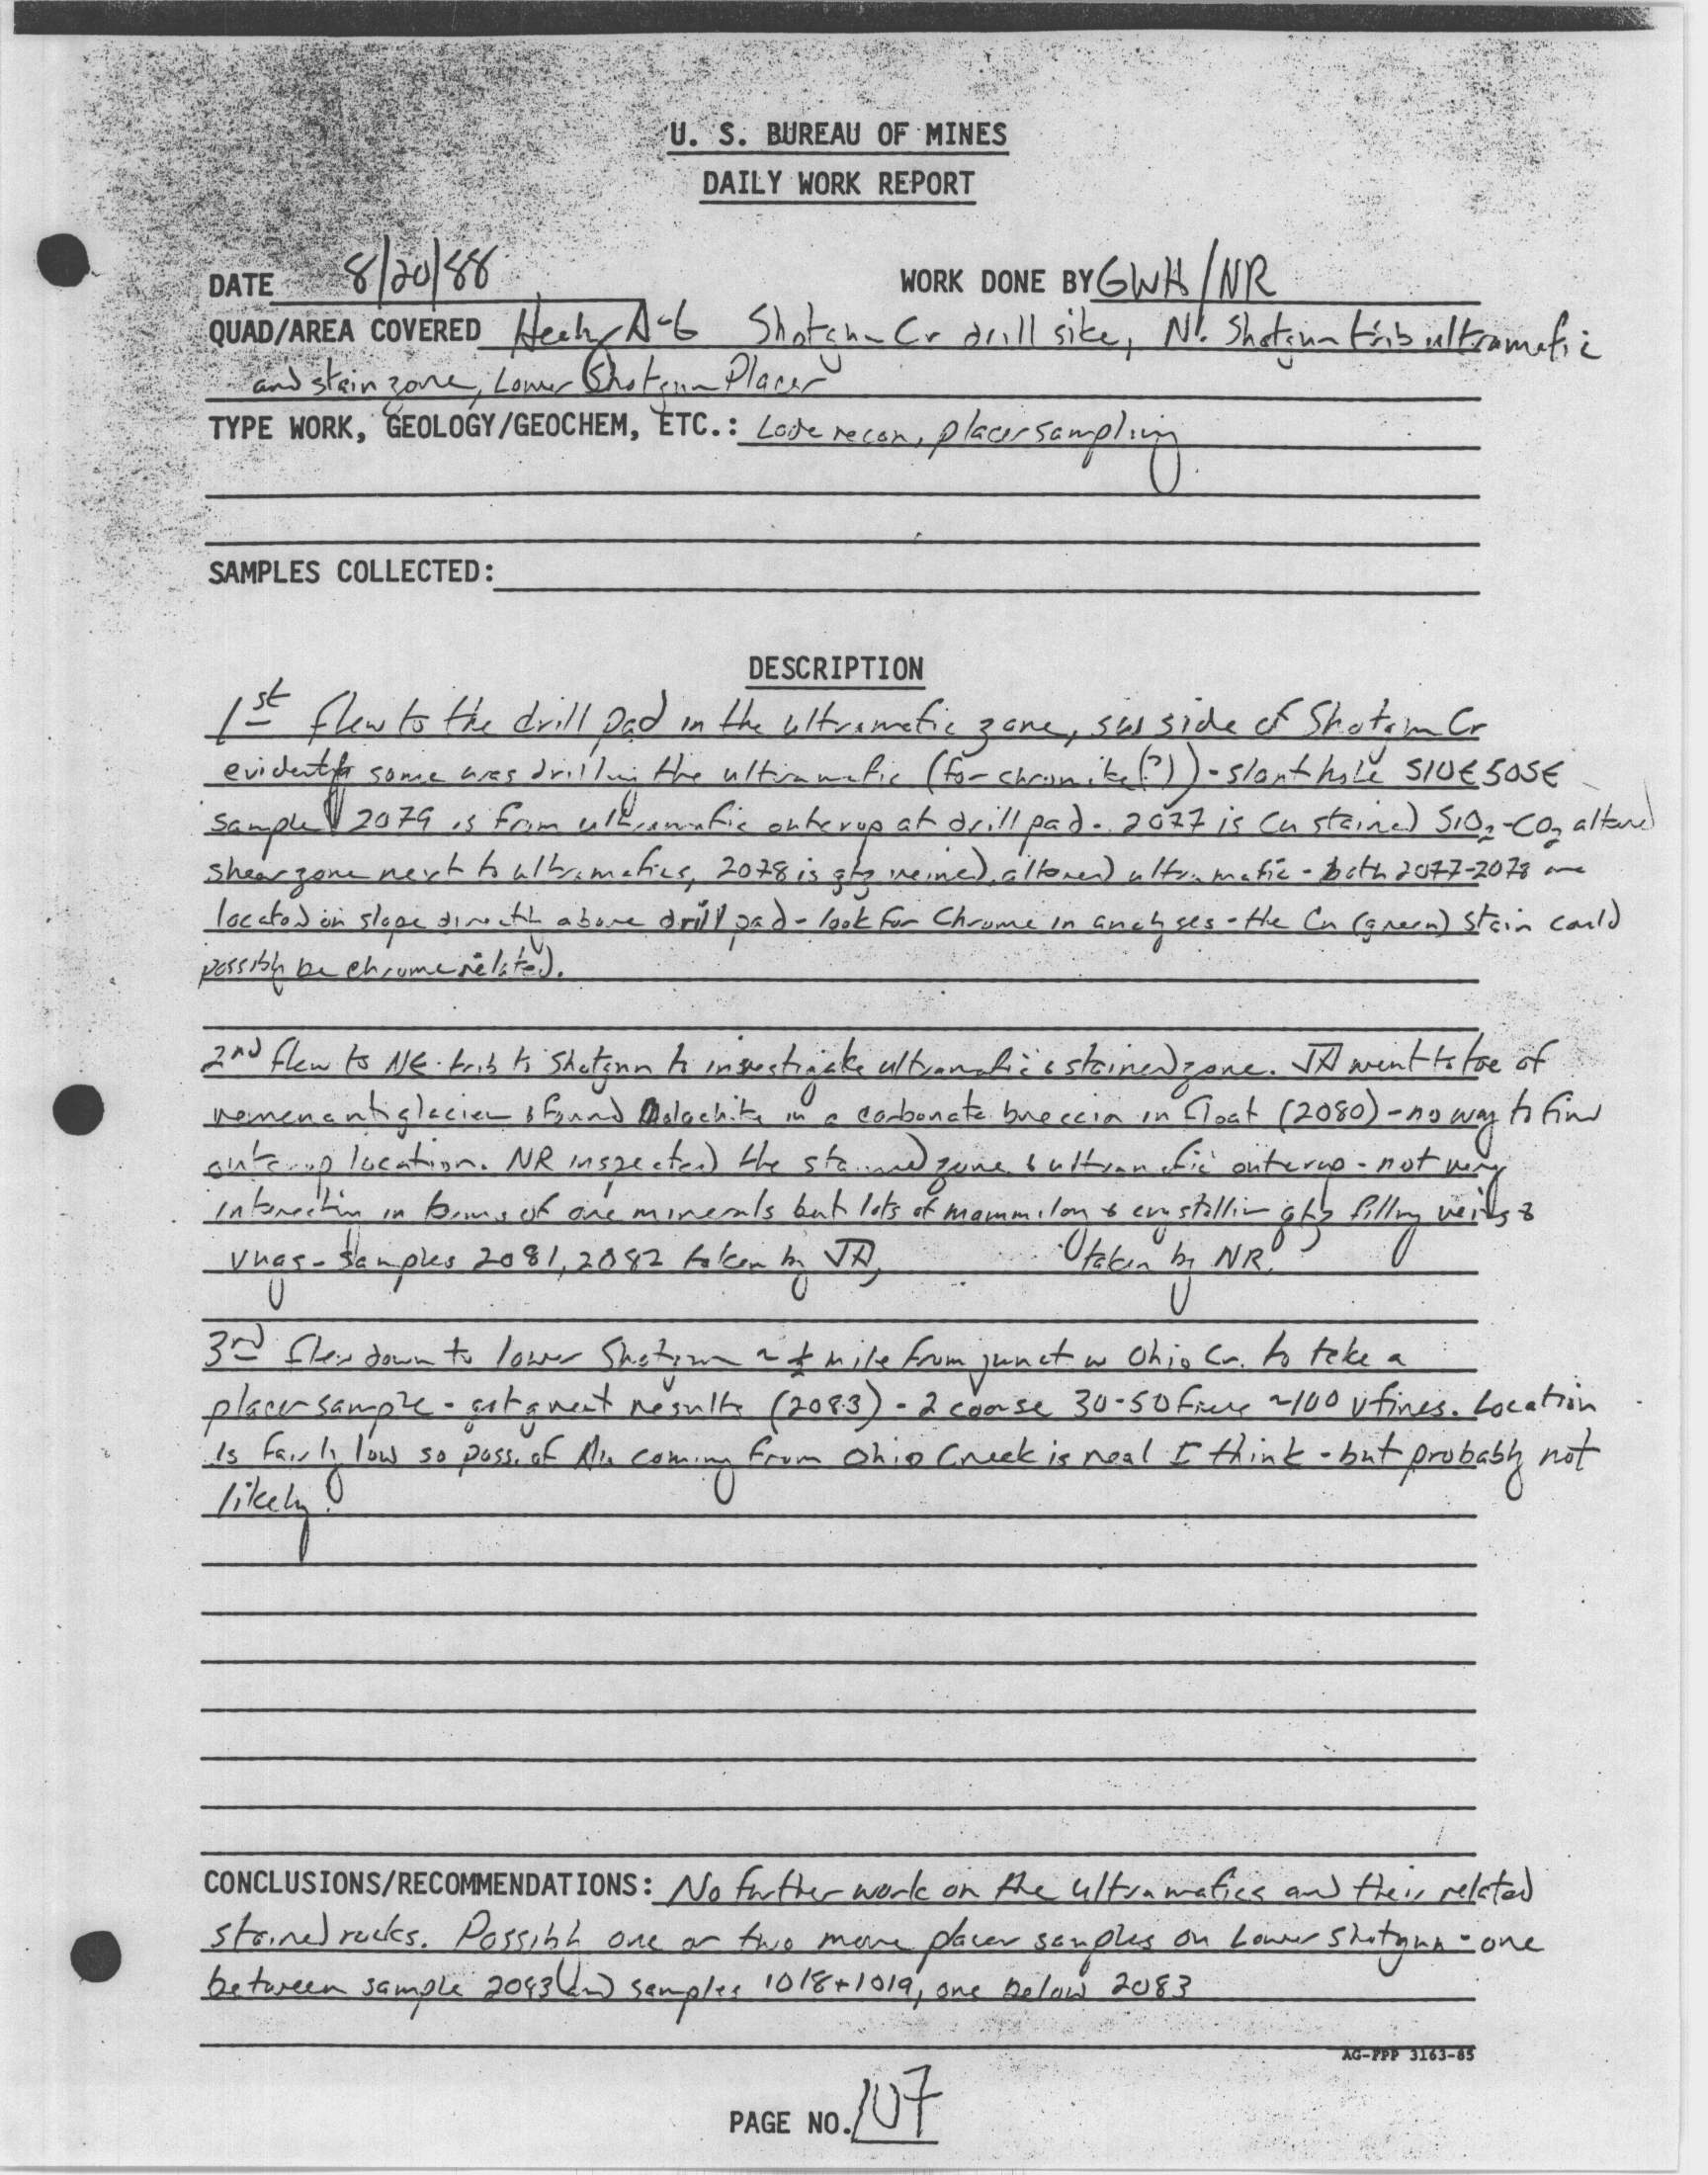 U. S. BUREAU OF MINES
DAILY WORK REPORT
DATE 8/20/88 WORK DONE BY GWH/NR
QUAD/AREA COVERED Healy A-6 Shotgun Cr drill site, N. Shotgun trib ultramafic
and stain zone, Lower Shotgun Placer
TYPE WORK, GEOLOGY/GEOCHEM, ETC.: Lode recon, placer sampling
SAMPLES COLLECTED:
DESCRIPTION
1st flew to the drill pad in the ultramafic zone, side of Shotgun Cr
evidently some was drilling the ultramafic (for chromite(?)) - slant hole S10E 50SE
sample 2079 is from ultramafic outcrop at drill pad. 2077 is Cu stained SiO2-CO2 altered
shear zone next to ultramafics, 2078 is qtz veined, altered ultramafic - both 2077-2078 are
located on slope directly above drill pad - look for Chrome in analyses - the Cu (green) stain could
possibly be chrome related.
2nd flew to NE trib to Shotgun to investigate ultramafic & stained zone. JA went to toe of
glacier & found Malachite in a carbonate breccia in float (2080) - no way to find
outcrop location. NR inspected the stained zone & ultramafic outcrop - not very
in terms of ore minerals but lots of & crystallin qtz filling veins &
vugs - samples 2081, 2082 taken by JA, taken by NR.
3rd flew down to lower Shotgun ~ ½ mile from junct w Ohio Cr. to take a
placer sample - got great results (2083) - 2 coarse 30-50 fine ~100 v fines. Location
is fairly low so poss. of Au coming from Ohio Creek is real I think - but probably not
likely.
CONCLUSIONS/RECOMMENDATIONS: No further work on the ultramafics and their related
stained rocks. Possibly one or two more placer samples on Lower Shotgun - one
between sample 2083 and samples 1018+1019, one below 2083
AG-FPP 3163-85
PAGE NO. 107